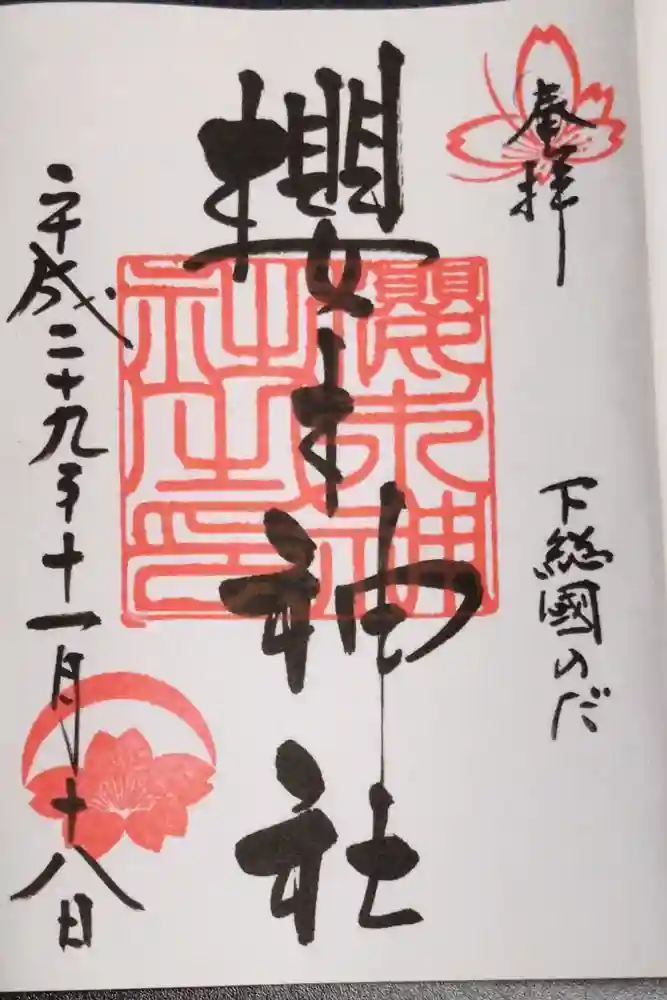 奉拝
下総國のだ
櫻木神社
櫻木神社之印
平成二十九年十一月十八日